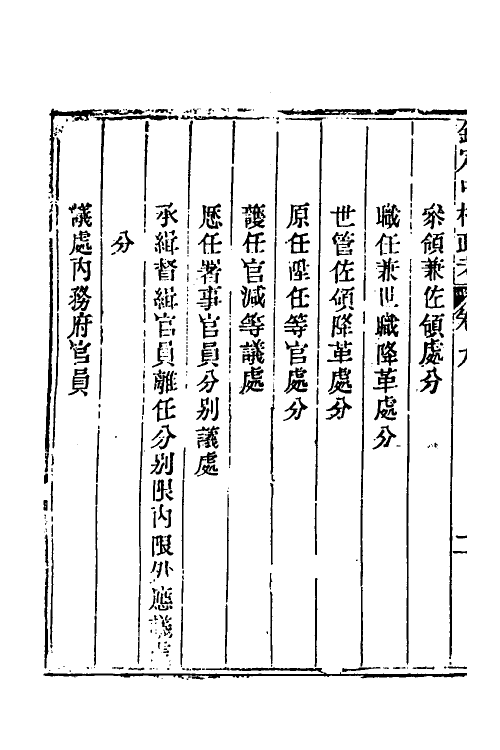 欽定中樞政考 卷九 二
叅領兼佐領處分
職任兼世職降革處分
世管佐領降革處分
原任陞任等官處分
護任官減等議處
歷任署事官員分别議處
承緝督緝官員離任分别限内限外應議
分
議處内務府官員